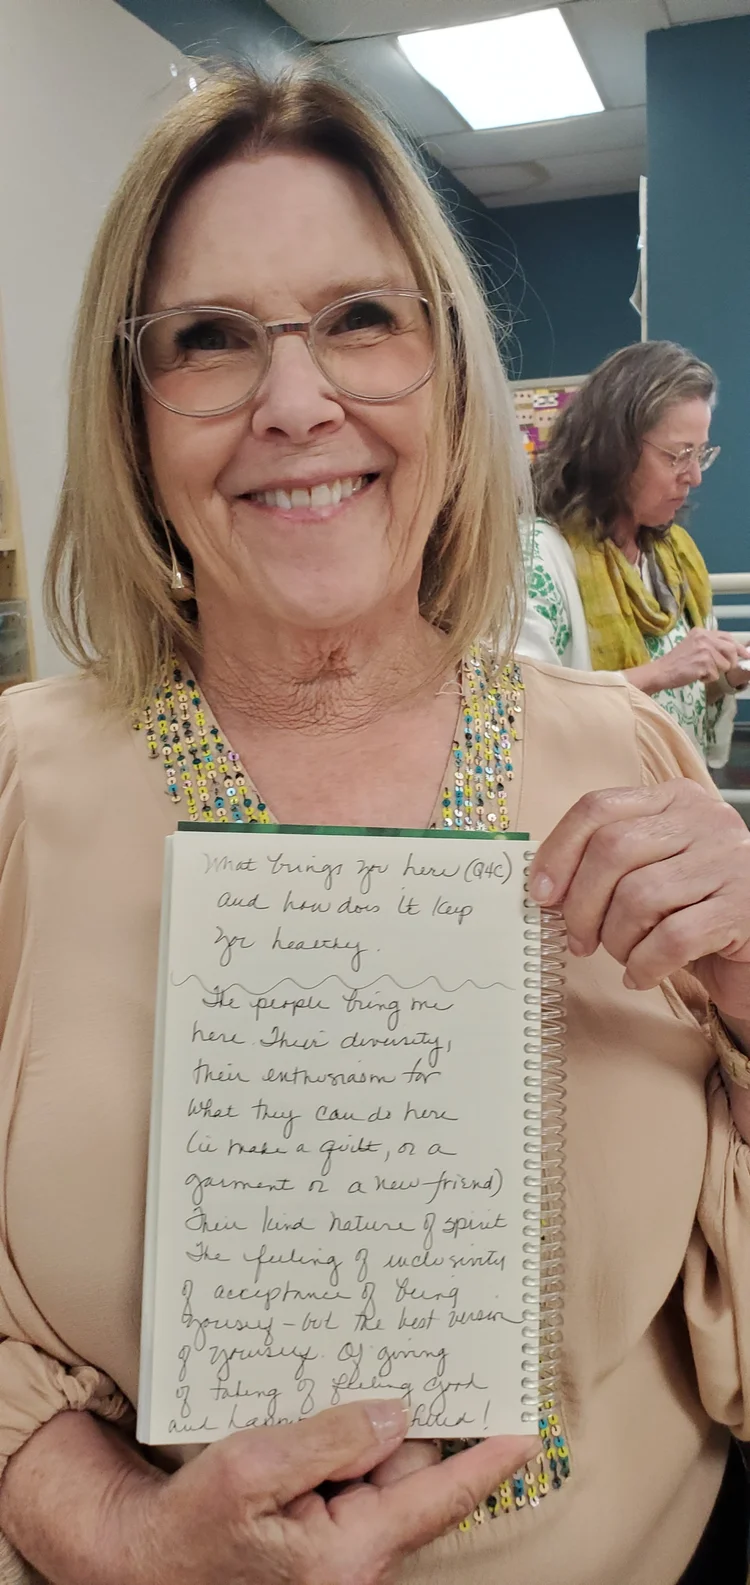 What brings you here (Q4C)
and how does it keep
you healthy.
The people bring me
here. Their diversity,
their enthusiasm for
what they can do here
(ie make a quilt, or a
garment or a new friend)
Their kind nature of spirit
The feeling of inclusivity
of acceptance of being
yourself - but the best version
of yourself. Of giving
of taking of feeling good
and